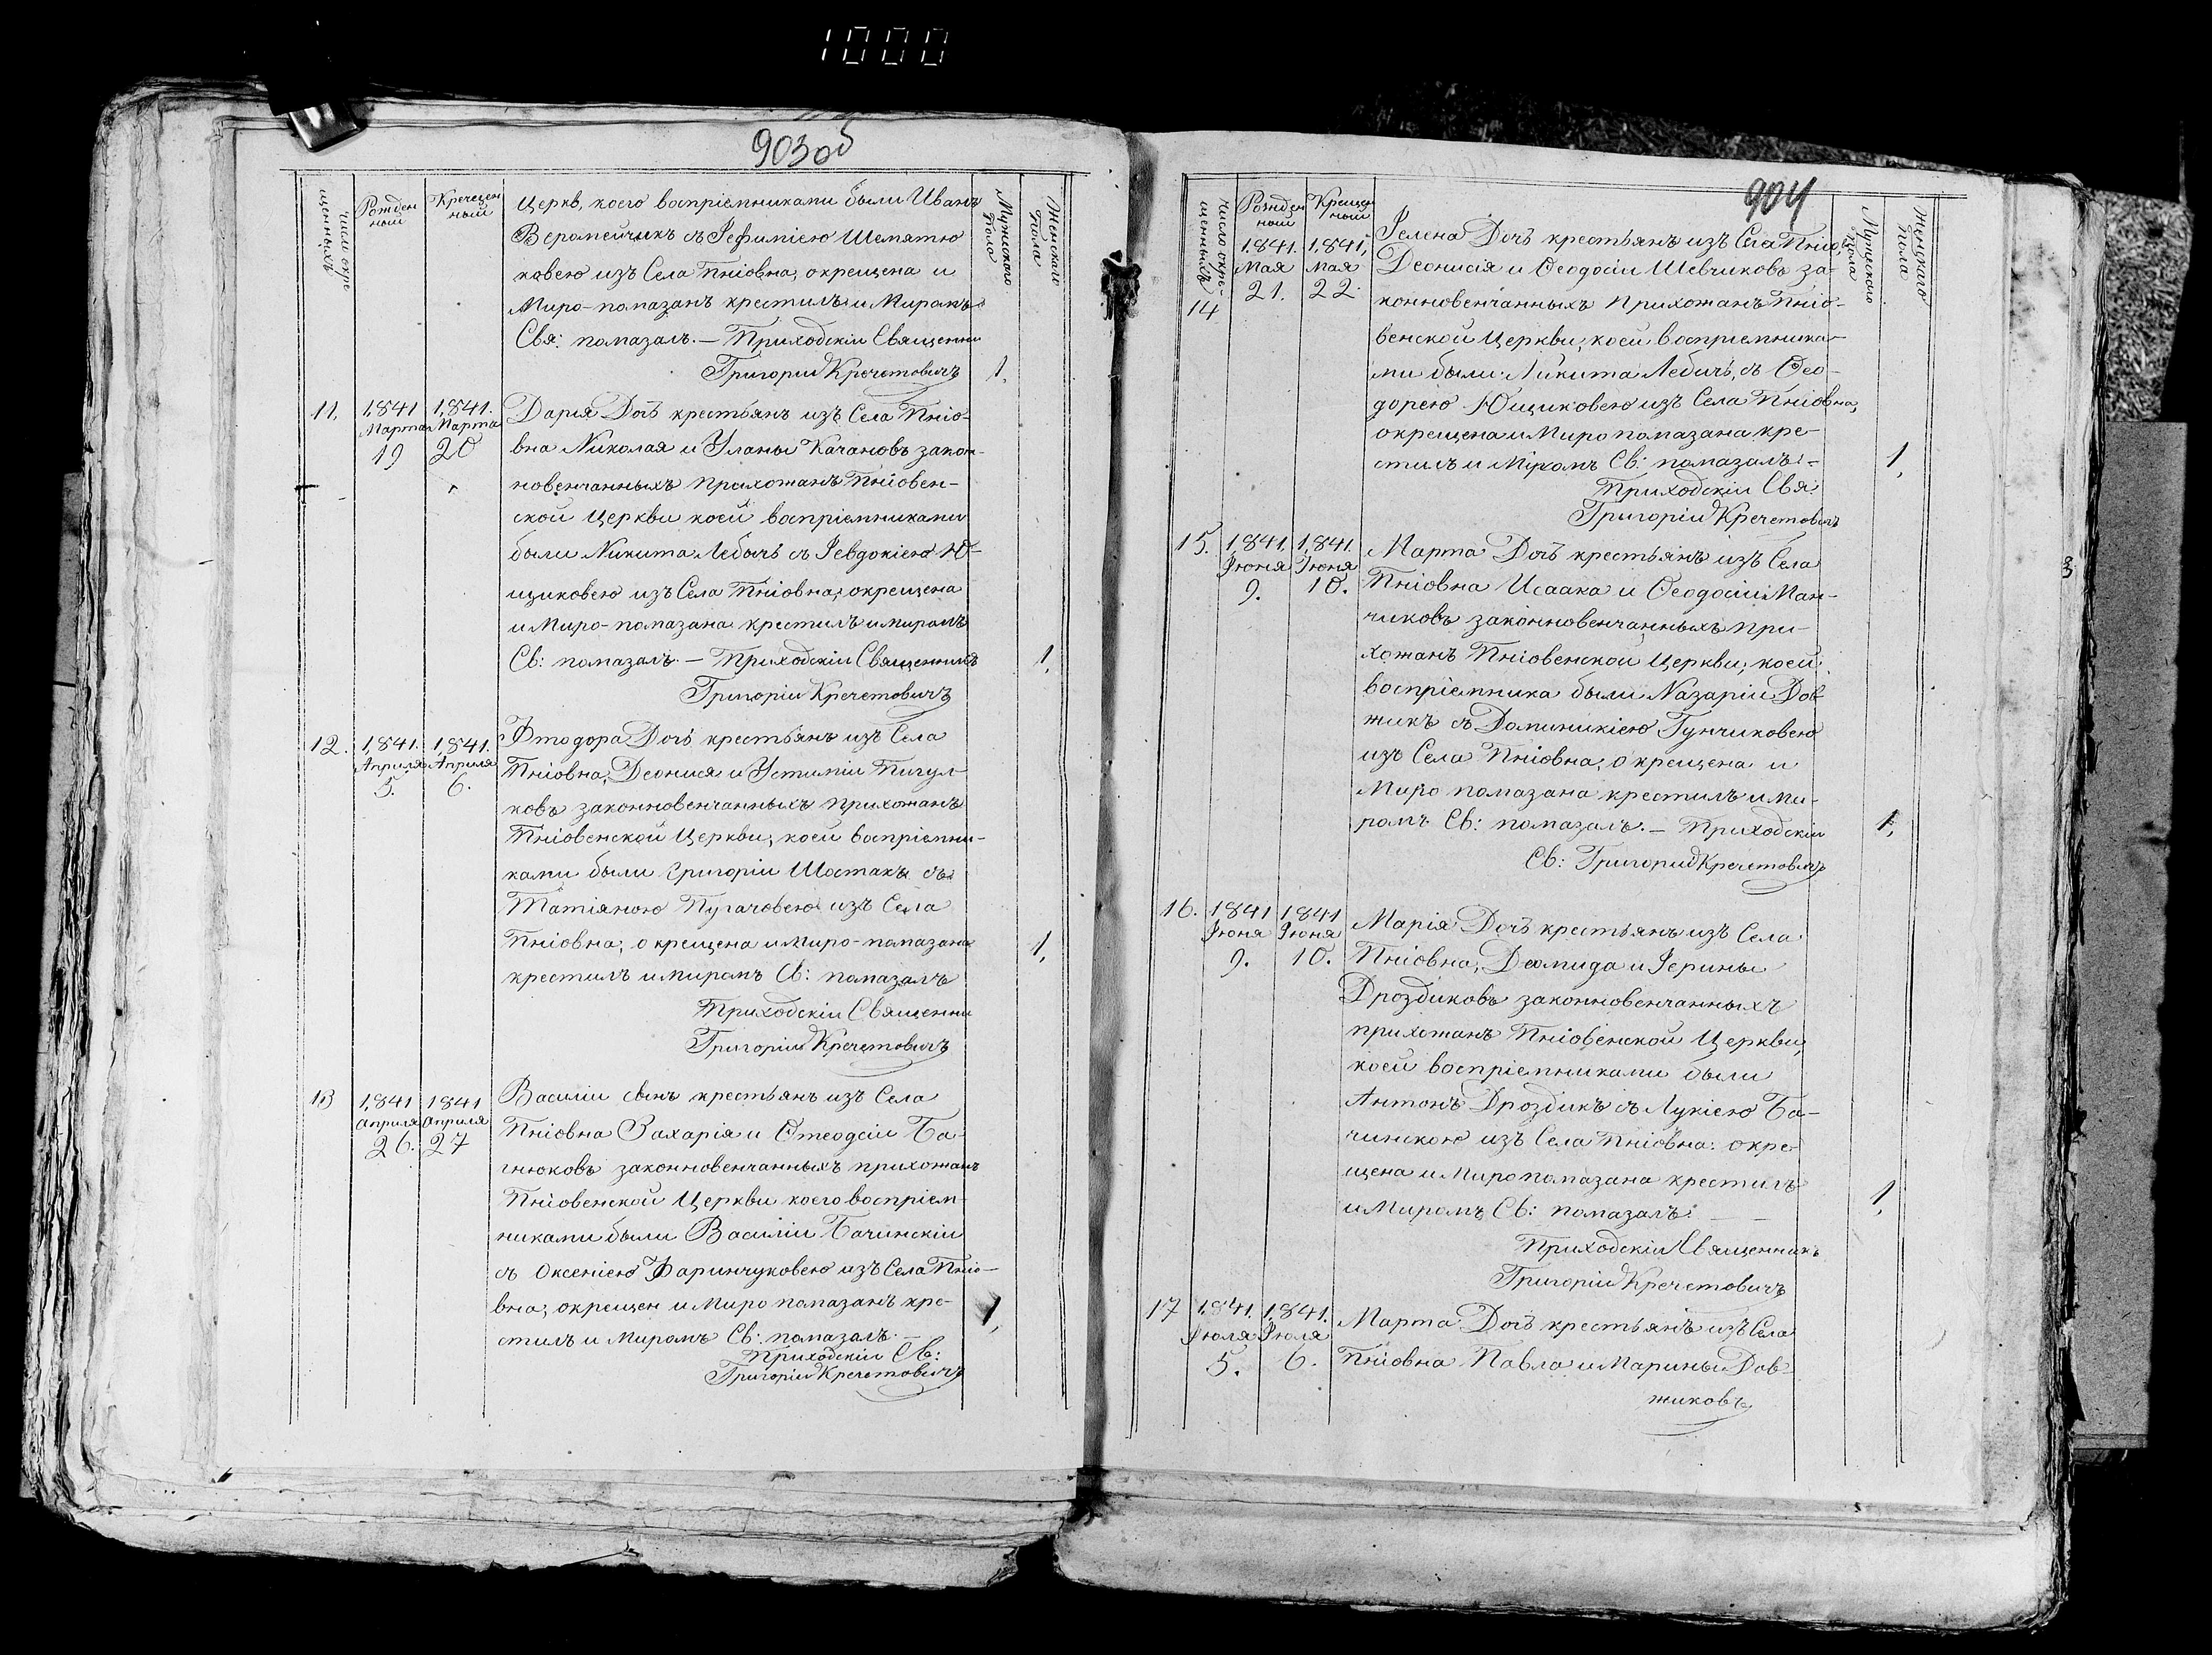 1000
903об
Число окре
щенныхъ
Рожден
ный
Крещен
ный
Мужеского
Пола
Женскаго
Пола
Церкв, коего воспріемниками были Иванъ
Веромейчикъ съ Іефиміею Шемятю
ковою изъ Села Пніовна, окрещена и
Миро-помазанъ крестилъ и Миромъ
Свя: помазалъ. — Приходскіи Священни
Григории Кречетовичъ
1.
11. 1841 Марта 19 1841. Марта 20
Дарія Дочь крестьянъ изъ Села Пніо-
вна Николая и Уланы Качановъ закон-
новенчанныхъ прихожанъ Пніовен-
ской Церкви коей воспріемниками
были Никита Лебичъ съ Іевдокіею Ю-
щиковою изъ Села Пніовна, окрещена
и Миро-помазана крестилъ и миромъ
Св: помазалъ. — Приходскіи Священникъ
Григоріи Кречетовичъ
1,
12. 1841. Апреля 5. 1841. Апреля 6.
Фтодора Дочь крестьянъ изъ Села
Пніовна, Деонися и Устиміи Пигул-
ковъ законновенчанныхъ прихожанъ
Пніовенской Церкви, коей воспріемни-
ками были Григоріи Шостакъ съ
Татіяною Пугачовою изъ Села
Пніовна, окрещена и миро-помазана
крестилъ и миромъ Св: помазалъ
Приходскіи Священни
Григоріи Кречетовичъ
1,
13 1841 Апреля 26. 1841 Апреля 27
Василіи сынъ крестьянъ изъ Села
Пніовна Захарія и Фтеодсіи Ба-
гнюковъ законновенчанныхъ прихожанъ
Пніовенской Церкви коего воспріем-
никами были Василіи Бачинскіи
съ Оксеніею Фаринчуковою изъ Села Пніо-
вна, окрещен и Миро помазанъ кре-
стилъ и Миромъ Св: помазалъ. —
Приходскіи Св:
Григоріи Кречетовичъ
1,
904
Число окре-
щенныхъ
Рожден
ный
Крещен
ный
Мужескаго
Пола
Женскаго
Пола
14 1841. Мая 21. 1841, Мая 22.
Іелена Дочь крестьянъ изъ Села Пніо,
Деонисія и Феодосіи Шевчиковъ за-
конновенчанныхъ прихожанъ Пніо-
венской Церкви, коей воспріемника-
ми были Никита Лебичъ, съ Фео-
дорею Ющиковою изъ Села Пніовна,
окрещена и Миро помазана кре-
стилъ и Міромъ Св: помазалъ: -
Приходскіи Свя:
Григоріи Кречетовичъ
1,
15. 1841. Іюня 9. 1841. Іюня 10.
Марта Дочь крестьянъ изъ Села
Пніовна Исаака и Феодосіи Ман-
чиковъ законновенчанныхъ при-
хожанъ Пніовенской Церкви, коей
воспріемника были Назаріи Дов
жикъ съ Доминикіею Гунчиковою
изъ Села Пніовна, окрещена и
Миро помазана крестилъ и ми-
ромъ Св: помазалъ. — Приходскіи
Св: Григории Кречетовичъ
1,
16. 1841 Іюня 9. 1841 Іюня 10.
Марія Дочь крестьянъ изъ Села
Пніовна, Деомида и Іерины
Дроздиковъ законновенчанныхъ
прихожанъ Пніовенской Церкви,
коей воспріемниками были
Антонъ Дроздикъ съ Лукіею Ба-
чинскою изъ Села Пніовна: окре
щена и Миро помазана крестилъ
и Миромъ Св: помазалъ. —
Приходскіи Священникъ
Григоріи Кречетовичъ
1,
17 1841. Іюля 5. 1841. Іюля 6.
Марта Дочь крестьянъ изъ Села
Пніовна Павла и Марины Дов-
жиковъ